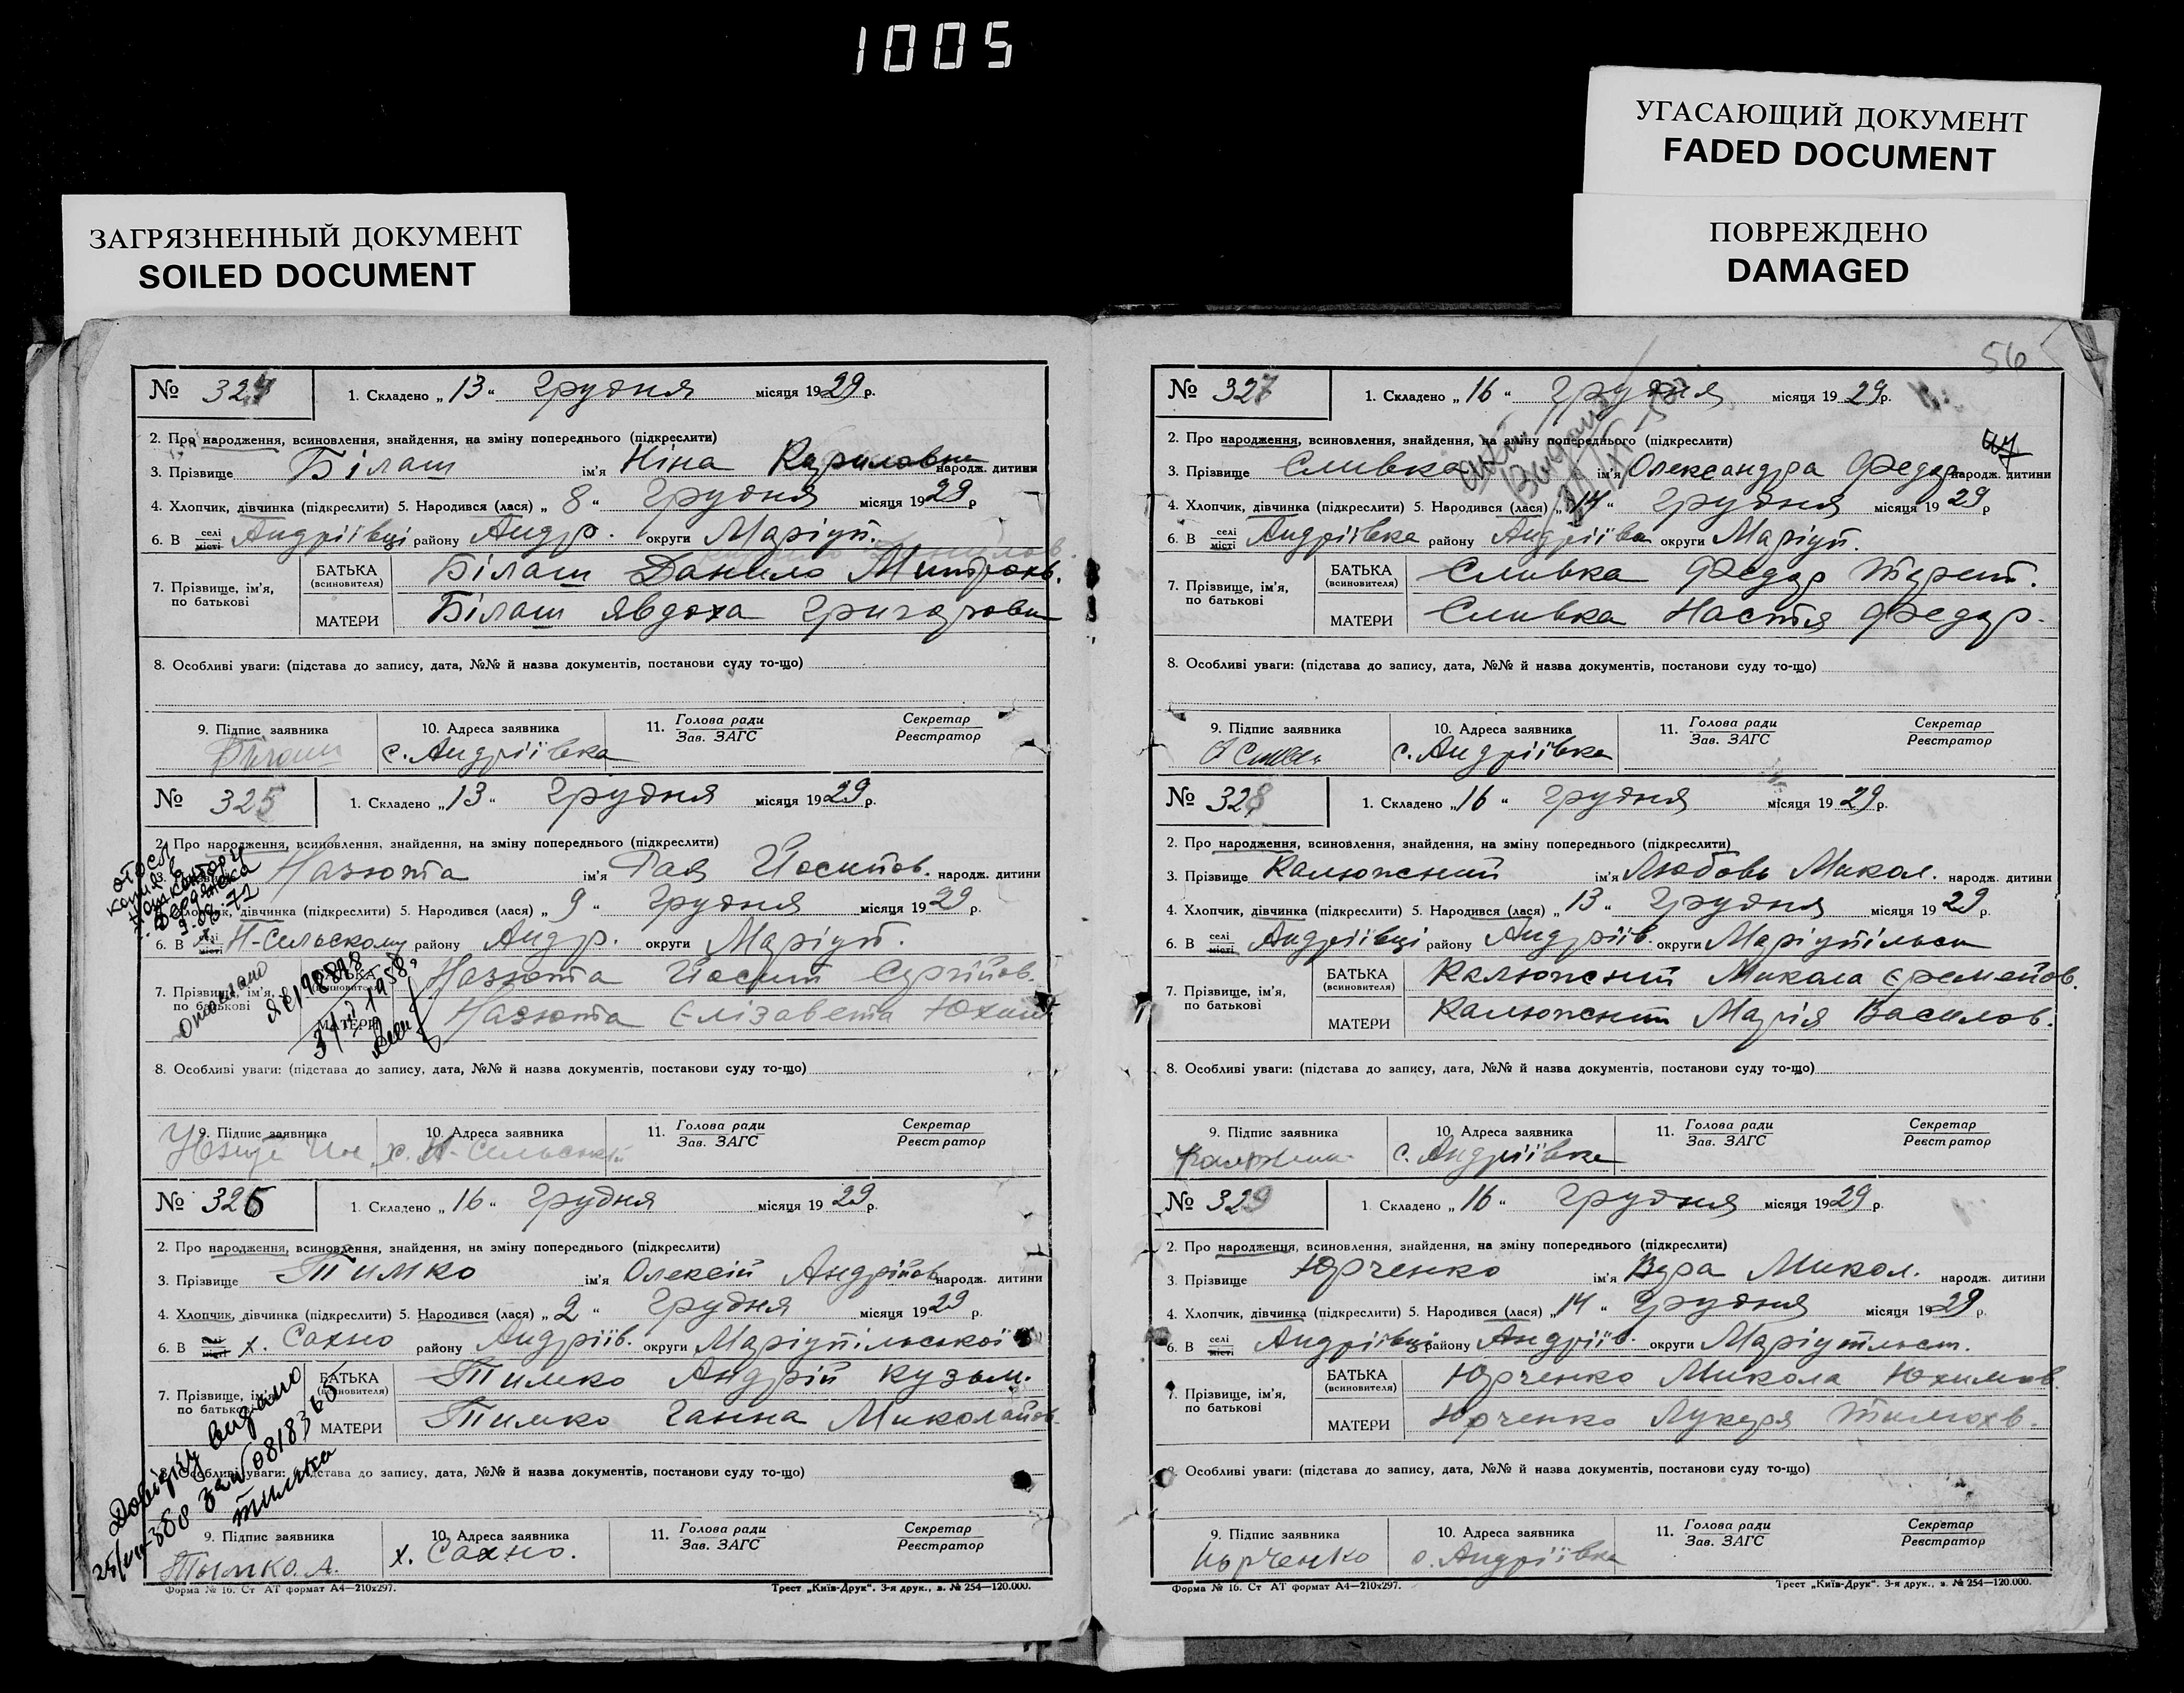 1005
УГАСАЮЩИЙ ДОКУМЕНТ
FADED DOCUMENT
ЗАГРЯЗНЕННЫЙ ДОКУМЕНТ
SOILED DOCUMENT
ПОВРЕЖДЕНО
DAMAGED
№ 324
1. Складено „ 13 “ Грудня місяця 1929 р.
2. Про народження, всиновлення, знайдення, на зміну попереднього (підкреслити)
3. Прізвище Білаш ім'я Ніна народж. дитини
4. Хлопчик, дівчинка (підкреслити) 5. Народився (лася) „ 8 “ Грудня місяця 1929 р
6. В селі місті Андріївці району Андр. округи Маріуп.
7. Прізвище, ім'я, по батькові
БАТЬКА (всиновителя) Білаш Данило Митрохв.
МАТЕРИ Білаш Явдоха Григоровн
8. Особливі уваги: (підстава до запису, дата, №№ й назва документів, постанови суду то-що)
9. Підпис заявника Білаш
10. Адреса заявника с. Андріївка
11. Голова ради Зав. ЗАГС
Секретар Реєстратор
№ 325
1. Складено „ 13 “ Грудня місяця 1929 р.
2. Про народження, всиновлення, знайдення, на зміну попереднього (підкреслити)
3. Прізвище Назюта ім'я Рая Йосипов. народж. дитини
4. Хлопчик, дівчинка (підкреслити) 5. Народився (лася) „ 9 “ Грудня місяця 1929 р.
6. В селі місті Н-Сельскому району Андр. округи Маріуп.
7. Прізвище, ім'я, по батькові
БАТЬКА (всиновителя) Назюта Йосип Сергійов.
МАТЕРИ Назюта Єлізавета Юхим
8. Особливі уваги: (підстава до запису, дата, №№ й назва документів, постанови суду то-що)
9. Підпис заявника
10. Адреса заявника х. Н-Сельский
11. Голова ради Зав. ЗАГС
Секретар Реєстратор
№ 326
1. Складено „ 16 “ Грудня місяця 1929 р.
2. Про народження, всиновлення, знайдення, на зміну попереднього (підкреслити)
3. Прізвище Тимко ім'я Олексій Андрійов народж. дитини
4. Хлопчик, дівчинка (підкреслити) 5. Народився (лася) „ 2 “ Грудня місяця 1929 р.
6. В селі місті х. Сахно району Андріїв. округи Маріупільської
7. Прізвище, ім'я, по батькові
БАТЬКА (всиновителя) Тимко Андрій Кузьм.
МАТЕРИ Тимко Ганна Миколайов
Довідку видано
за № 0818366
8. Особливі уваги: (підстава до запису, дата, №№ й назва документів, постанови суду то-що)
9. Підпис заявника Тымко. А.
10. Адреса заявника х. Сахно.
11. Голова ради Зав. ЗАГС
Секретар Реєстратор
Форма № 16. Ст АТ формат А4—210х297.
Трест „Київ-Друк“. 3-я друк., з. № 254—120.000.
56
№ 327
1. Складено „ 16 “ Грудня місяця 1929 р.
2. Про народження, всиновлення, знайдення, на зміну попереднього (підкреслити)
3. Прізвище Сливка ім'я Олександра Федор народж. дитини
4. Хлопчик, дівчинка (підкреслити) 5. Народився (лася) „ 14 “ Грудня місяця 1929 р
6. В селі місті Андріївка району Андріїв округи Маріуп.
7. Прізвище, ім'я, по батькові
БАТЬКА (всиновителя) Сливка Федор Терент.
МАТЕРИ Сливка Настя Федор.
8. Особливі уваги: (підстава до запису, дата, №№ й назва документів, постанови суду то-що)
9. Підпис заявника
10. Адреса заявника с. Андріївка
11. Голова ради Зав. ЗАГС
Секретар Реєстратор
№ 328
1. Складено „ 16 “ Грудня місяця 1929 р.
2. Про народження, всиновлення, знайдення, на зміну попереднього (підкреслити)
3. Прізвище Калюжний ім'я Любовь Микол. народж. дитини
4. Хлопчик, дівчинка (підкреслити) 5. Народився (лася) „ 13 “ Грудня місяця 1929 р.
6. В селі місті Андріївці району Андріїв. округи Маріупільск
7. Прізвище, ім'я, по батькові
БАТЬКА (всиновителя) Калюжний Микола Єремейов.
МАТЕРИ Калюжний Марія Василов.
8. Особливі уваги: (підстава до запису, дата, №№ й назва документів, постанови суду то-що)
9. Підпис заявника
10. Адреса заявника с. Андріївка
11. Голова ради Зав. ЗАГС
Секретар Реєстратор
№ 329
1. Складено „ 16 “ Грудня місяця 1929 р.
2. Про народження, всиновлення, знайдення, на зміну попереднього (підкреслити)
3. Прізвище Юрченко ім'я Вера Микол. народж. дитини
4. Хлопчик, дівчинка (підкреслити) 5. Народився (лася) „ 14 “ Грудня місяця 1929 р.
6. В селі місті Андріївці району Андріїв. округи Маріупільск.
7. Прізвище, ім'я, по батькові
БАТЬКА (всиновителя) Юрченко Микола Юхимов
МАТЕРИ Юрченко Лукеря Тимохв.
8. Особливі уваги: (підстава до запису, дата, №№ й назва документів, постанови суду то-що)
9. Підпис заявника Юрченко
10. Адреса заявника с. Андріївка
11. Голова ради Зав. ЗАГС
Секретар Реєстратор
Форма № 16. Ст АТ формат А4—210х297.
Трест „Київ-Друк“. 3-я друк., з. № 254—120.000.